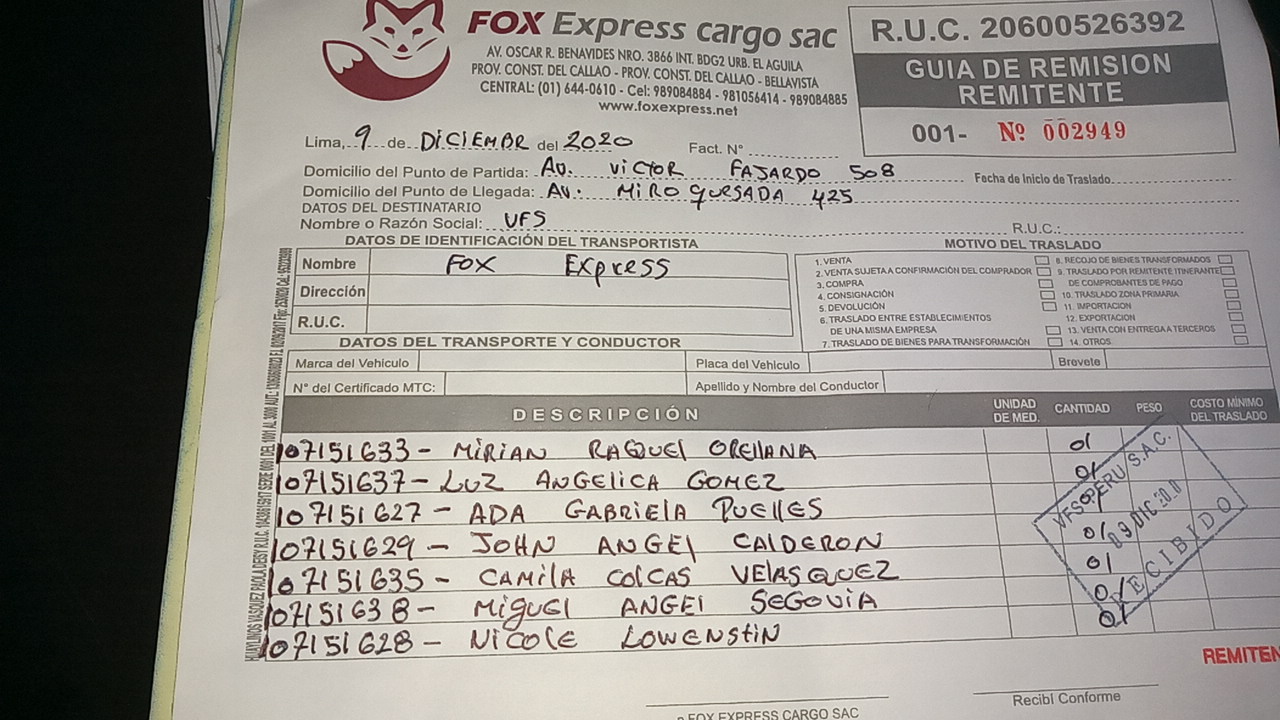 FOX Express cargo sac
AV. OSCAR R. BENAVIDES NRO. 3866 INT. BDG2 URB. EL AGUILA
PROV. CONST. DEL CALLAO - PROV. CONST. DEL CALLAO - BELLAVISTA
CENTRAL: (01) 644-0610 - Cel: 989084884 - 981056414 - 989084885
www.foxexpress.net
R.U.C. 20600526392
GUIA DE REMISION
REMITENTE
001- Nº 002949
Lima, 9 de DICIEMBR del 2020 Fact. N°
Domicilio del Punto de Partida: AV. VICTOR FAJARDO 508 Fecha de Inicio de Traslado
Domicilio del Punto de Llegada: AV. MIRO QUESADA 425
DATOS DEL DESTINATARIO
Nombre o Razón Social: VFS R.U.C.:
DATOS DE IDENTIFICACIÓN DEL TRANSPORTISTA
Nombre FOX EXpress
Dirección
R.U.C.
MOTIVO DEL TRASLADO
1. VENTA
2. VENTA SUJETA A CONFIRMACIÓN DEL COMPRADOR
3. COMPRA
4. CONSIGNACIÓN
5. DEVOLUCIÓN
6. TRASLADO ENTRE ESTABLECIMIENTOS
DE UNA MISMA EMPRESA
7. TRASLADO DE BIENES PARA TRANSFORMACIÓN
8. RECOJO DE BIENES TRANSFORMADOS
9. TRASLADO POR REMITENTE ITINERANTE
DE COMPROBANTES DE PAGO
10. TRASLADO ZONA PRIMARIA
11. IMPORTACION
12. EXPORTACION
13. VENTA CON ENTREGA A TERCEROS
14. OTROS
DATOS DEL TRANSPORTE Y CONDUCTOR
Marca del Vehiculo Placa del Vehiculo Brevete
N° del Certificado MTC: Apellido y Nombre del Conductor
DESCRIPCIÓN UNIDAD DE MED. CANTIDAD PESO COSTO MÍNIMO DEL TRASLADO
107151633 - MIRIAN RAQUEl ORELLANA 01
107151637 - LUZ ANGELICA GOMEZ 01
107151627 - ADA GABRIELA PUELLES 01
107151629 - JOHN ANGEL CALDERON 01
107151635 - CAMILA COLCAS VELASQUEZ 01
107151638 - MIGUEL ANGEL SEGOVIA 01
107151628 - NICOLE LOWENSTIN 01
VFS PERU S.A.C.
09 DIC 2020
RECIBIDO
REMITEN
FOX EXPRESS CARGO SAC
Recibí Conforme